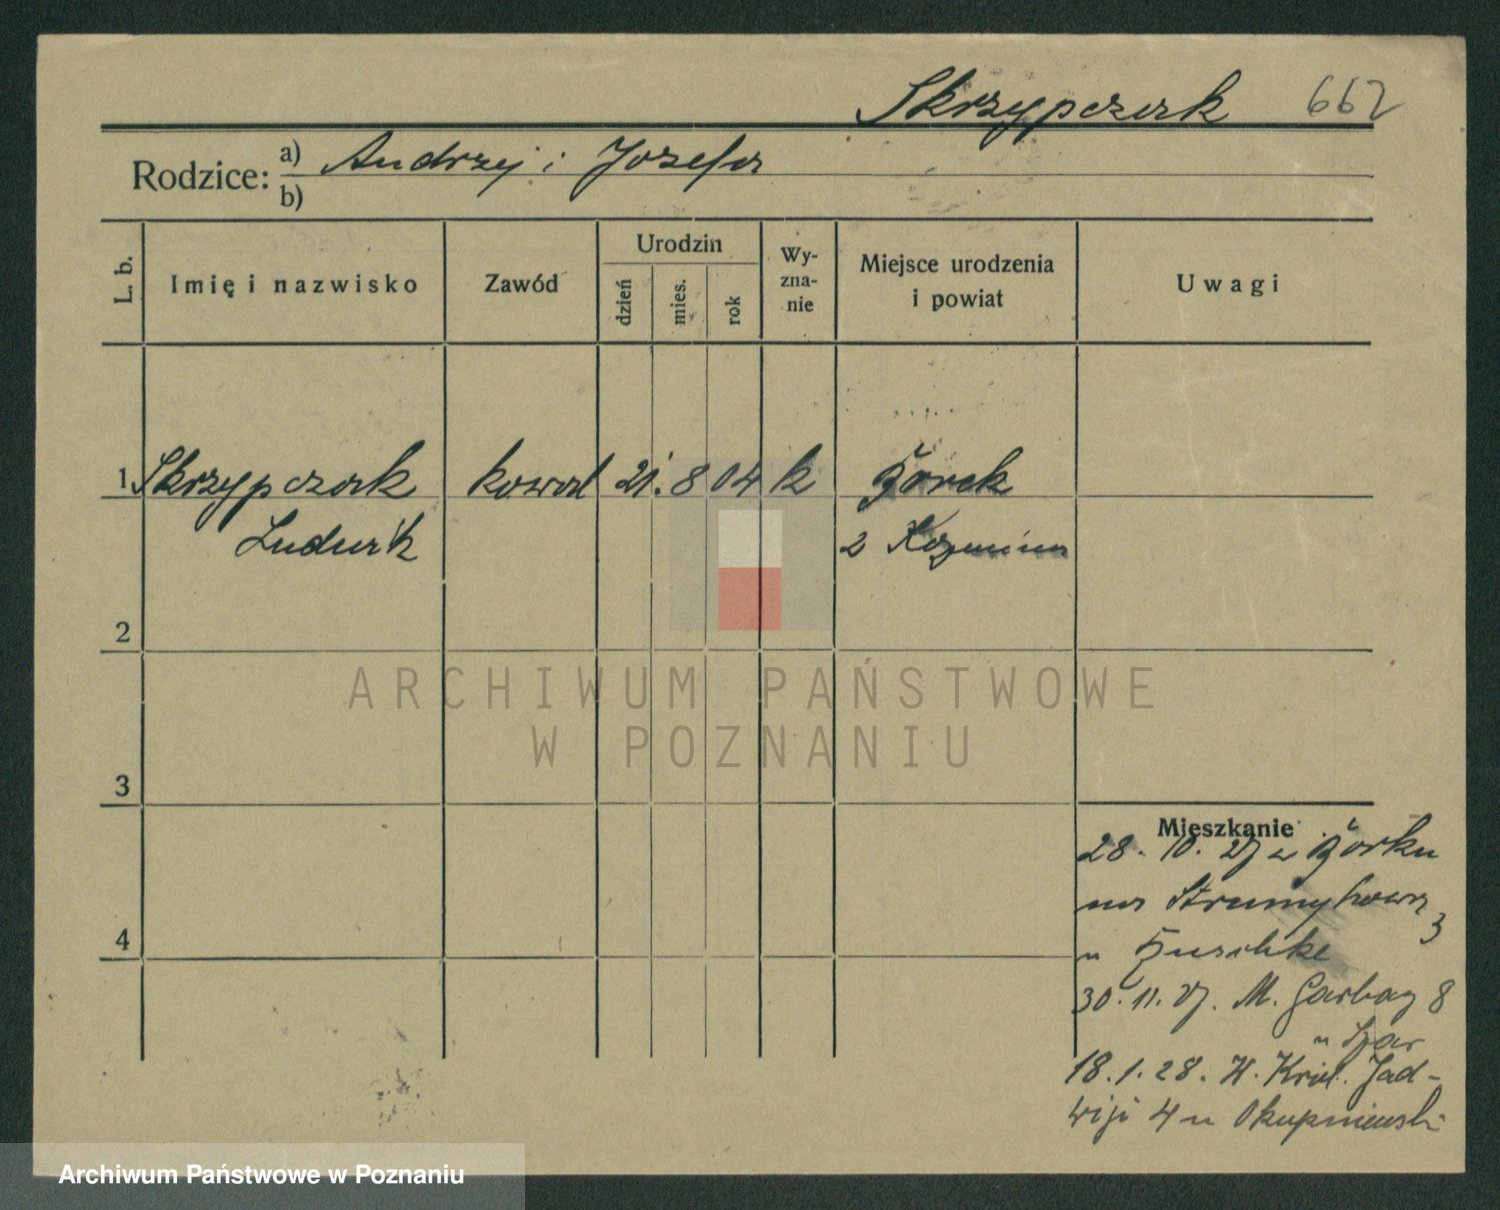 Skrzypczak 662
Rodzice: a) Andrzej i Józefa
b)
L. b.
Imię i nazwisko
Zawód
Urodzin
dzień
mies.
rok
Wy-
zna-
nie
Miejsce urodzenia
i powiat
Uwagi
1 Skrzypczak kowal 21. 8 04 k Borek
Ludwik z Koźmina
2
3
4
ARCHIWUM PAŃSTWOWE
W POZNANIU
Mieszkanie
28. 10. 27 z Borku
na Strumykowa 3
u
30. 11. 27. M. Garbary 8
u
18. 1. 28. W. Król. Jad-
wigi 4 u Okupniewski
Archiwum Państwowe w Poznaniu